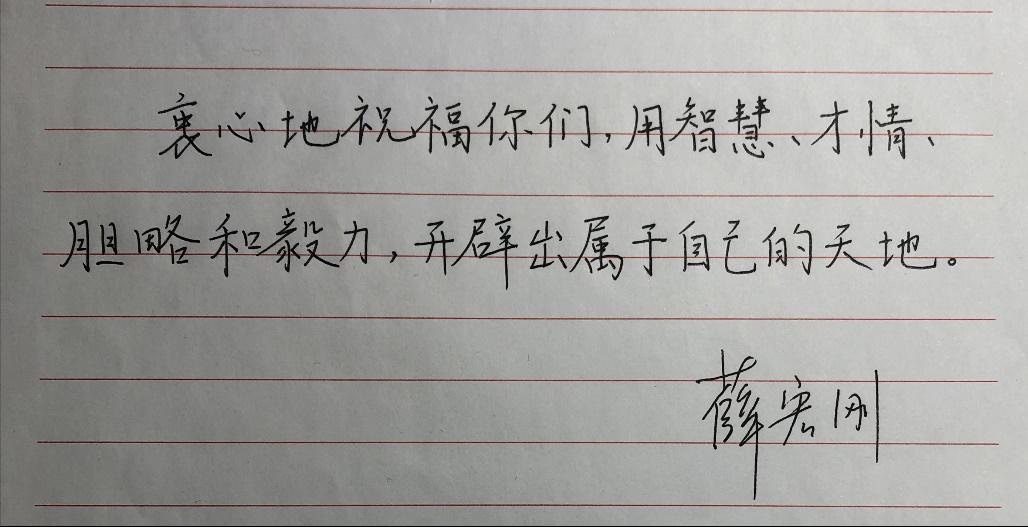 衷心地祝福你们,用智慧、才情、
胆略和毅力,开辟出属于自己的天地。
薛宏刚